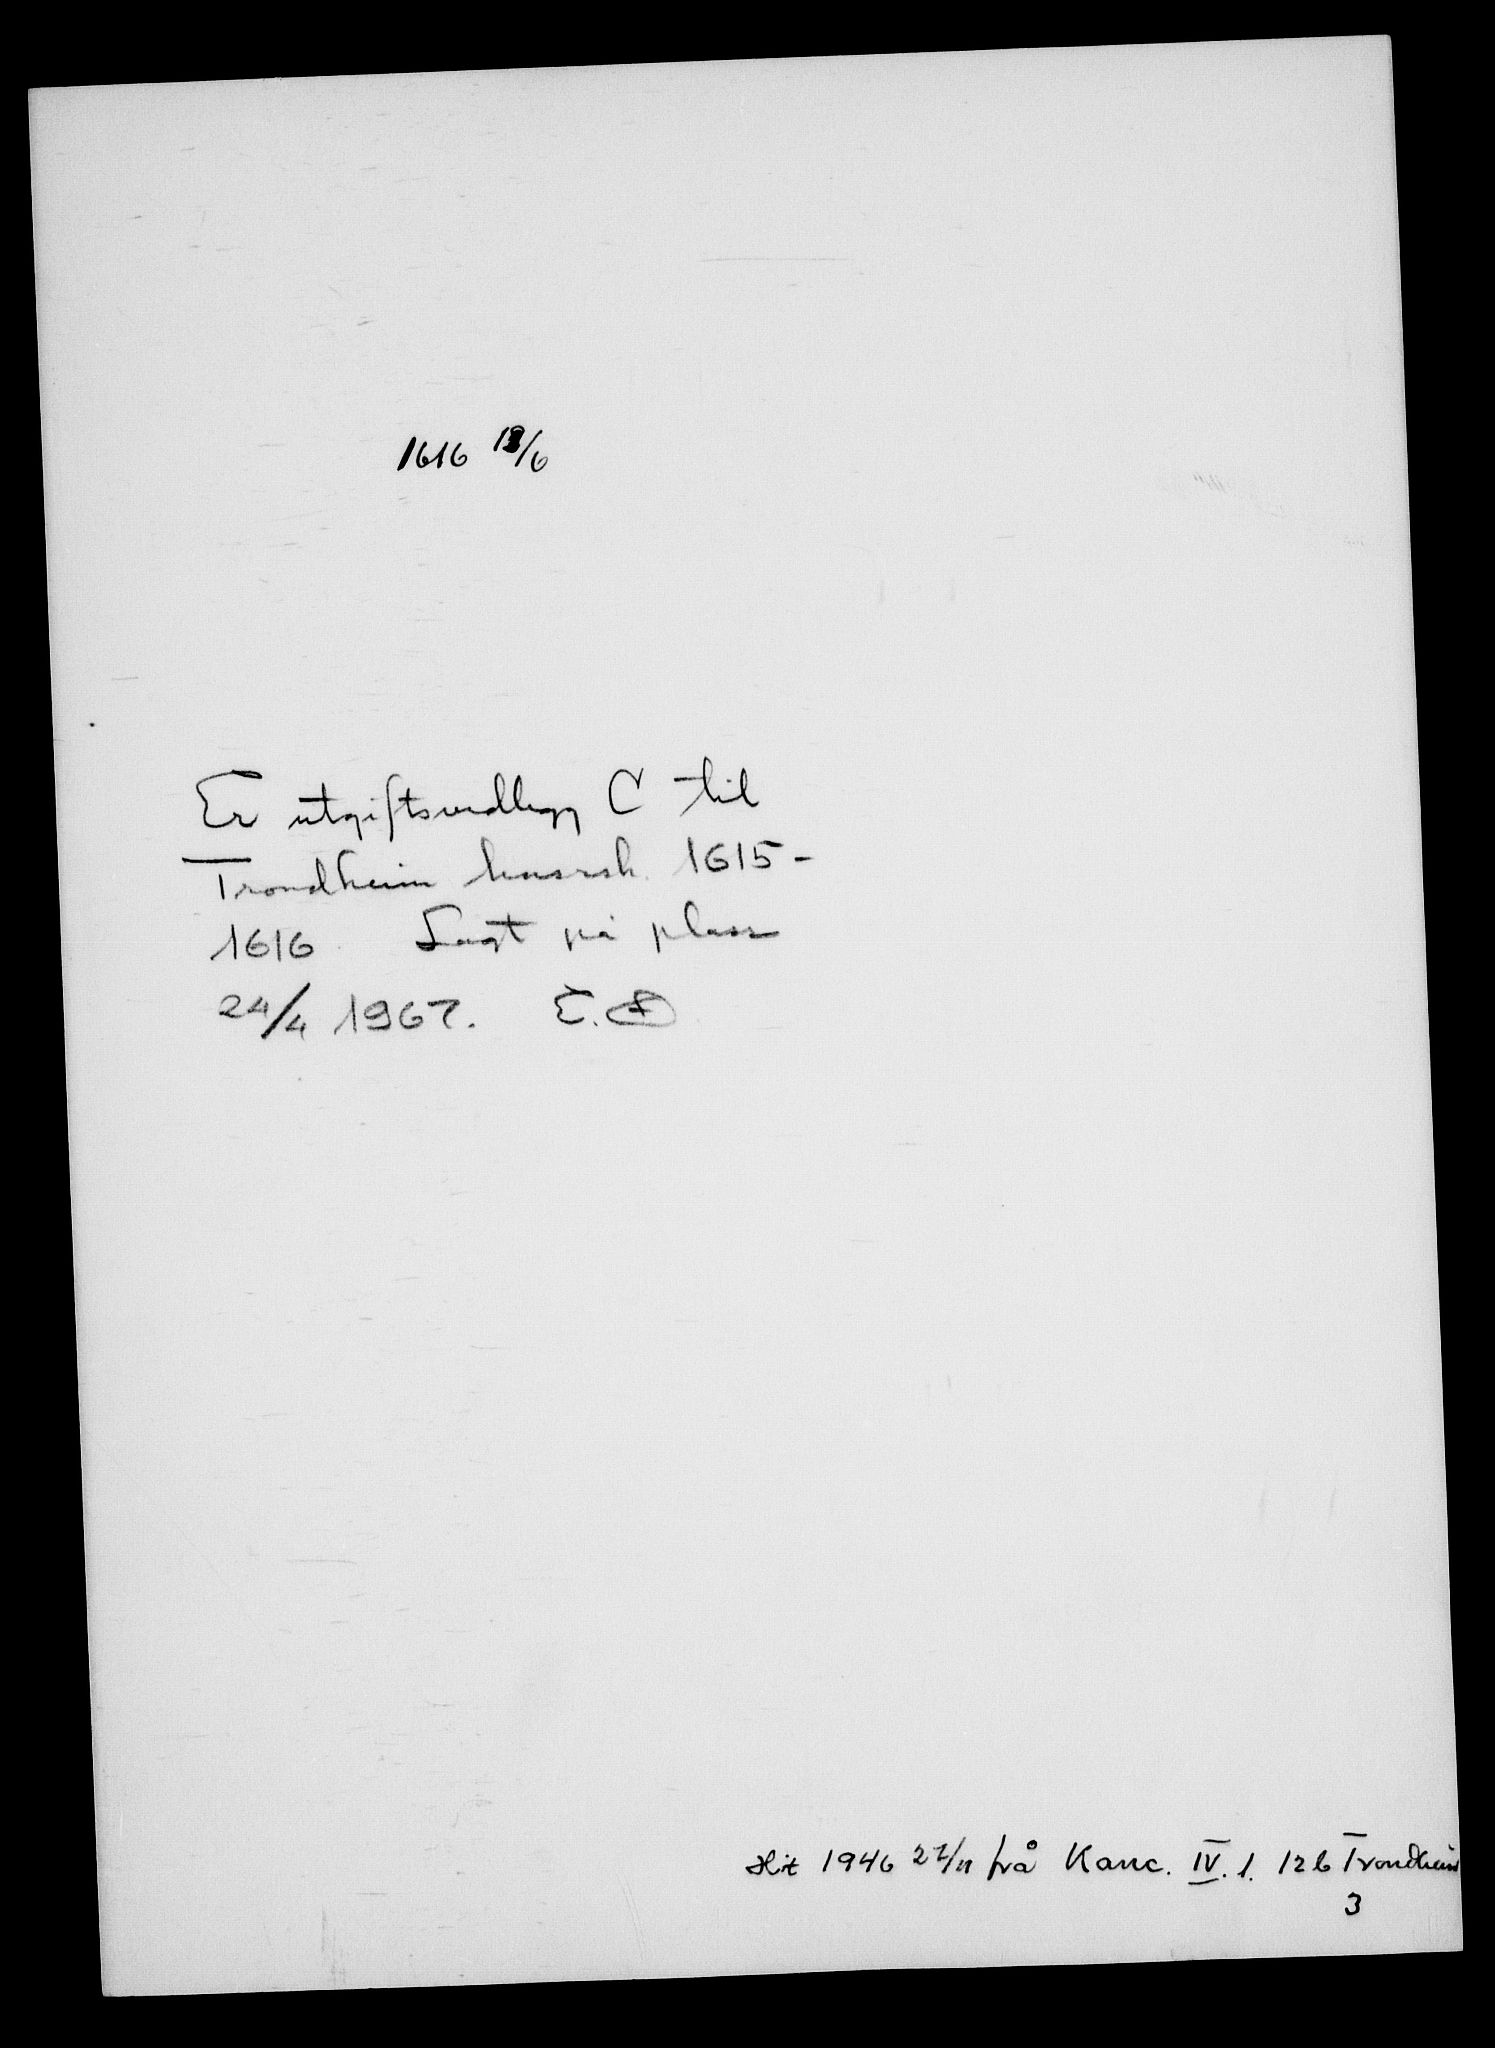 1616 /6
Er utgiftsvedlegg C til
Trondheim lensrsk. 1615-
1616 Lagt på plass
24/4 1967. E.
Hit 1946 22/11 frå Kanc. IV. 1. 12 b Trondheim
3